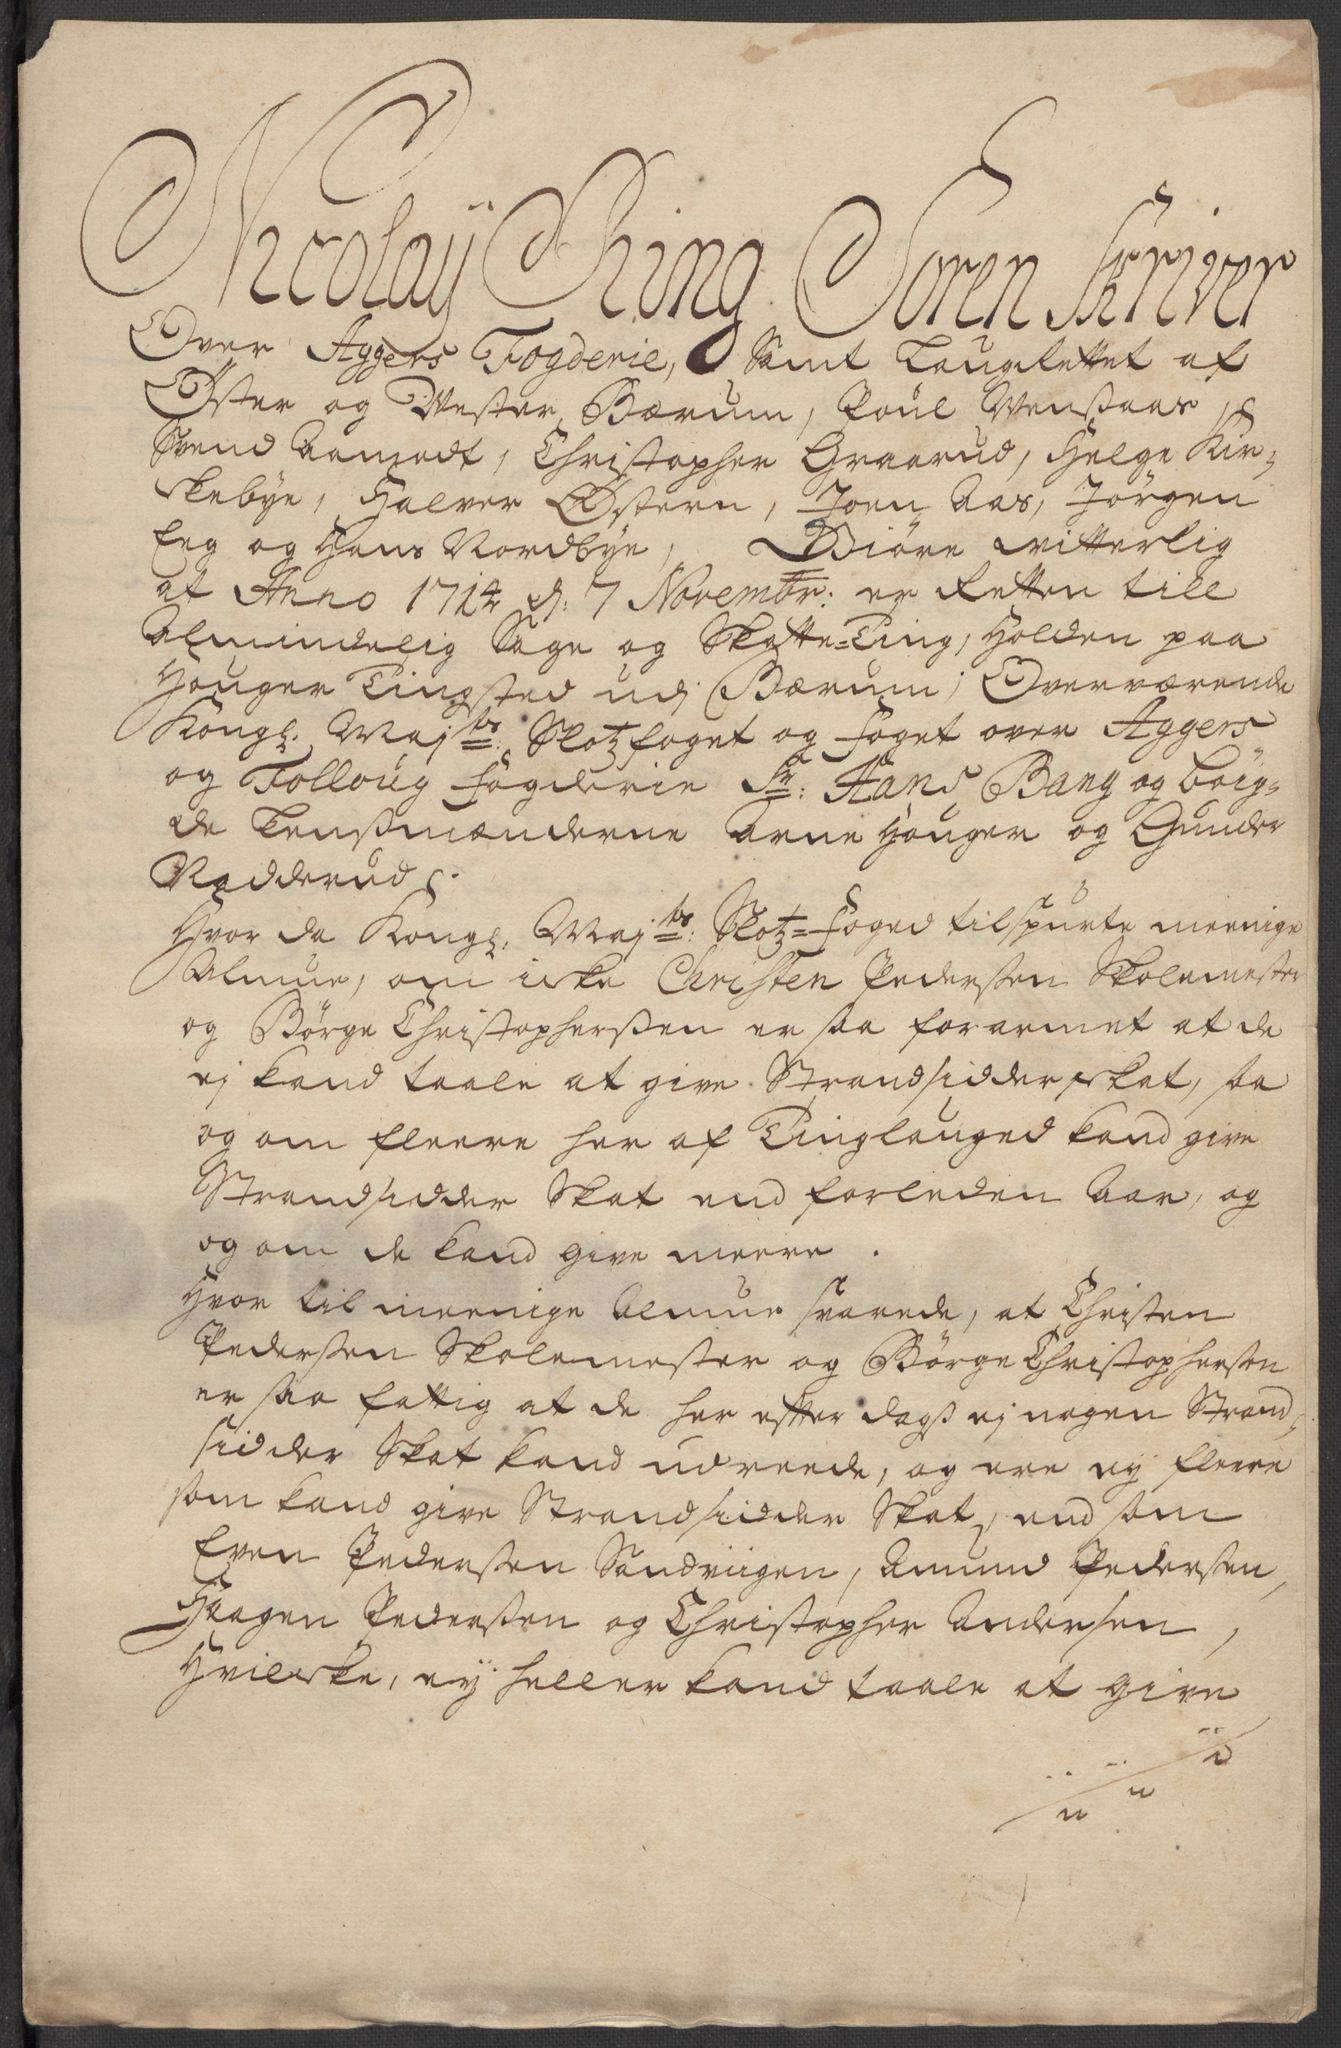 Nicolaÿ Ring Soren Skriver
Over Aggers Fogderie, Samt Laugrettet af
Øster og Vester Bærum, Poul Wensaas,
Svend Aamodt, Christopher Graarud, Helge Kir-
kebye, Halvor Østern, Joen Aas, Jörgen
Eeg og Hans Nordbye, Giöre witterlig
at Anno 1714 d: 7 Novembr: er Retten till
Almindelig Sage og Skatte-Ting, Holden paa
Houger Tingsted udj Bærum, Overværende
Kongl: Majts: Slotzfoget og foget over Aggers
og Folloug fogderie Sr: Hans Bang og böig-
de Lensmænderne Arne Houger og Gunder
Nadderud.
Hvor da Kongl: Majts: Slotz-foged tilspurte meenige
Almue, om icke Christen Pedersen Skolemester
og Börge Christophersen er saa forarmet at de
ej kand taale at give Strandsidder skat, saa
og om fleere her af Tinglauged kand give
Strandsidder Skat end forleden Aar, og
og om de kand give meere.
Hvor til meenige Almue svarede, at Christen
Pedersen Skolemester og Börge Christophersen
er saa fattig at de her effter dags ej nogen Strand-
sidder Skat kand udreede, og ere ey fleere
som kand give Strandsidder Skat, end som
Even Pedersen Sandviigen, Amund Pedersen,
Haagen Pedersen og Christopher Andersen,
Hvilcke, eÿ heller kand taale at give